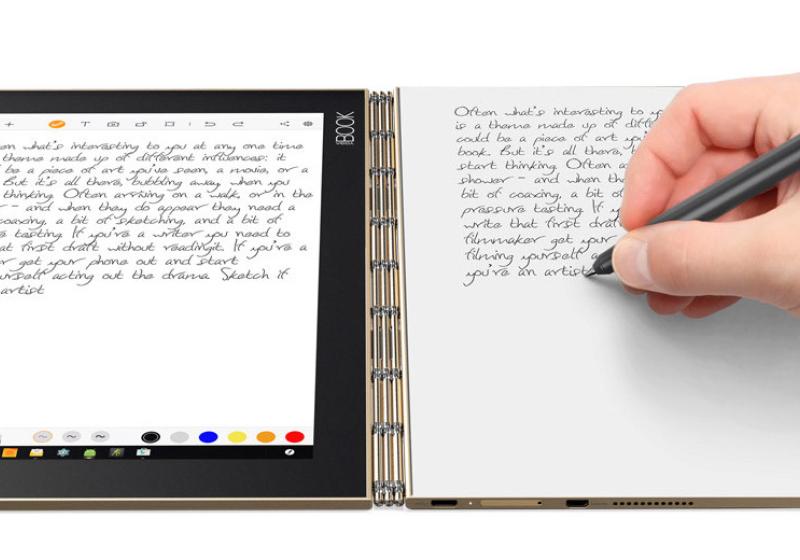 en what's interesting to you at any one time
theme made up of different influences: it
be a piece of art you've seen, a movie, or a
But it's all there, bubbling away, when you
thinking Often arising on a walk, or in the
- and when they do appear they need a
coaxing, a bit of sketching, and a bit of
e testing If you're a writer you need to
at first draft without readingit If you're a
r get your phone out and start
urself acting out the drama Sketch if
artist
BOOK
Often what's interesting to yo
is a theme made up of diffe
could be a piece of art you'
book. But it's all there,
start thinking Often ar
shower - and when th
bit of coaxing, a bit of
pressure testing If y
write that first draf
filmmaker get your
filming yourself a
you're an artist